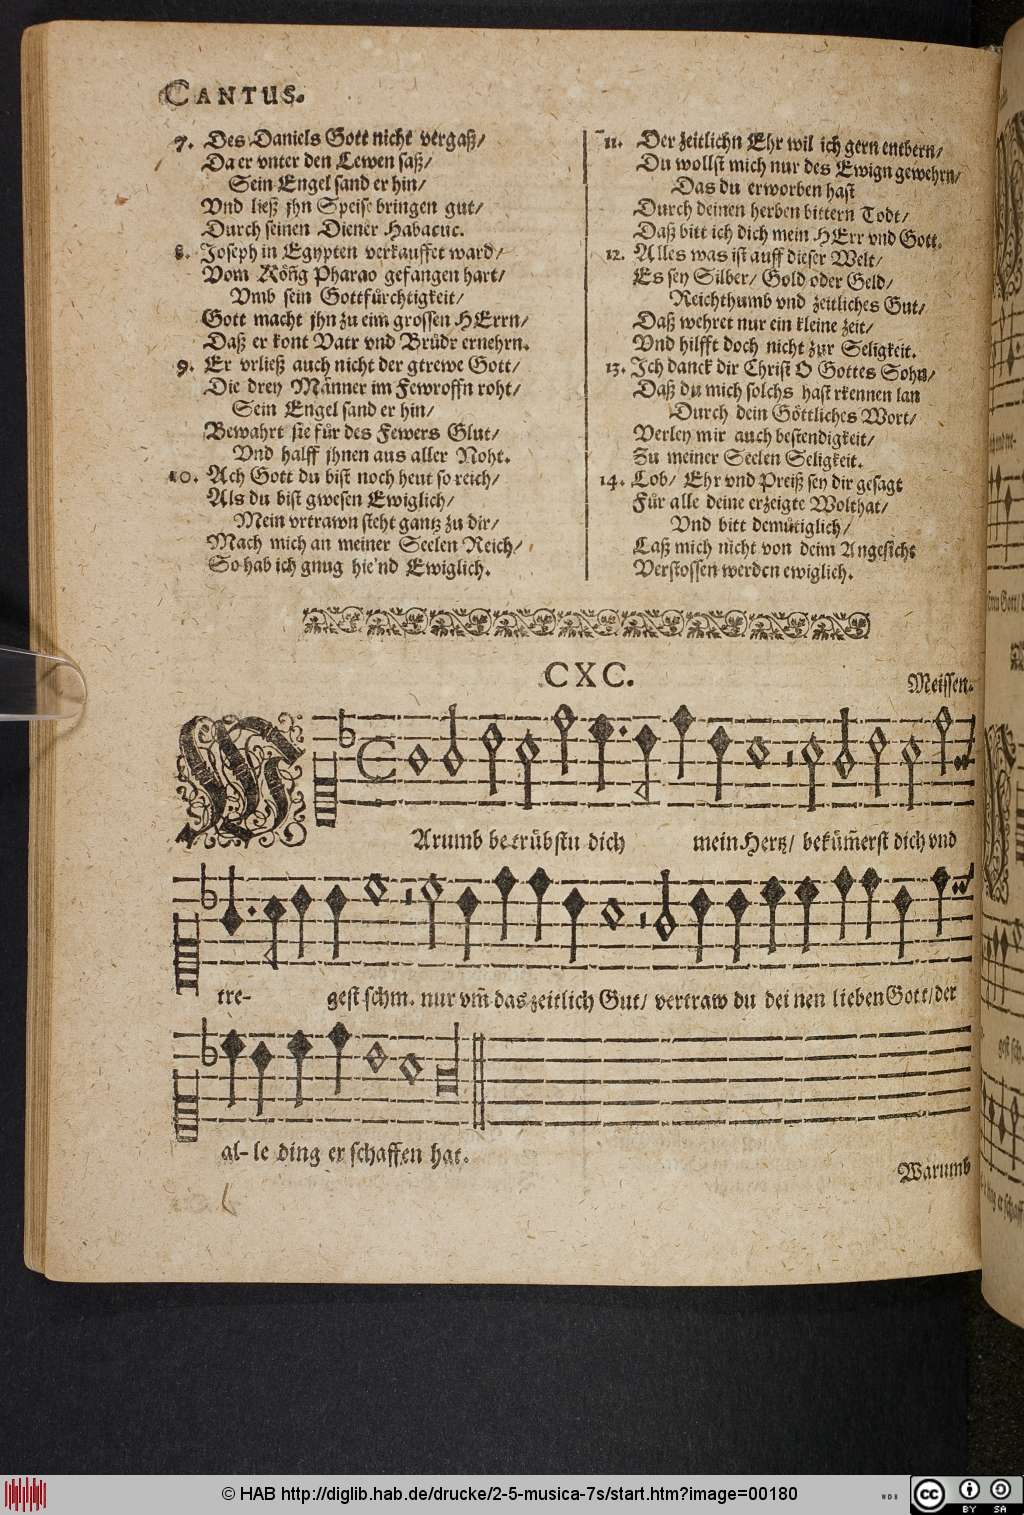 CANTUS.
7. Des Daniels Gott nicht vergaß/
Da er vnter den Lewen saß/
Sein Engel sand er hin/
Vnd ließ jhn Speise bringen gut/
Durch seinen Diener Habacuc.
8. Joseph in Egypten verkauffet ward/
Vom Köñg Pharao gefangen hart/
Vmb sein Gottfürchtigkeit/
Gott macht jhn zu eim grossen HErrn/
Daß er kont Vatr vnd Brüdr ernehrn.
9. Er vrließ auch nicht der gtrewe Gott/
Die drey Männer im Fewroffn roht/
Sein Engel sand er hin/
Bewahrt sie für des Fewers Glut/
Vnd halff jhnen aus aller Noht.
10. Ach Gott du bist noch heut so reich/
Als du bist gwesen Ewiglich/
Mein vrtrawn steht gantz zu dir/
Mach mich an meiner Seelen Reich/
So hab ich gnug hie'nd Ewiglich.
11. Der zeitlichn Ehr wil ich gern entbern/
Du wollst mich nur des Ewign gewehrn/
Das du erworben hast
Durch deinen herben bittern Todt/
Daß bitt ich dich mein HErr vnd Gott.
12. Alles was ist auff dieser Welt/
Es sey Silber/ Gold oder Geld/
Reichthumb vnd zeitliches Gut/
Daß wehret nur ein kleine zeit/
Vnd hilfft doch nicht zur Seligkeit.
13. Ich danck dir Christ O Gottes Sohn/
Daß du mich solchs hast rkennen lan
Durch dein Göttliches Wort/
Verley mir auch bestendigkeit/
Zu meiner Seelen Seligkeit.
14. Lob/ Ehr vnd Preiß sey dir gesagt
Für alle deine erzeigte Wolthat/
Vnd bitt demütiglich/
Laß mich nicht von deim Angesicht
Verstossen werden ewiglich.
CXC.
Meissen.
WArumb be-trübstu dich mein Hertz/ beküm̃erst dich vnd
tre- gest schm. nur vm̃ das zeitlich Gut/ vertraw du dei nen lieben Gott/ der
al- le ding er schaffen hat.
Warumb
© HAB http://diglib.hab.de/drucke/2-5-musica-7s/start.htm?image=00180
WDB
cc BY SA